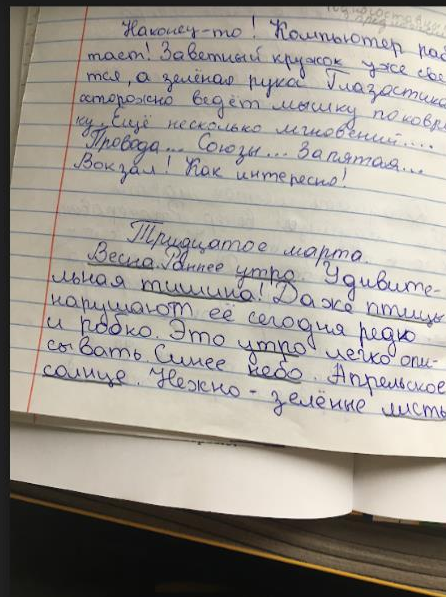 Наконец-то! Компьютер рабо
тает! Заветный кружок уже све
тся, а зелёная рука Глазастика
осторожно ведёт мышку по коври
ку. Ещё несколько мгновений....
Провода... Союзы... Запятая...
Вокзал! Как интересно!
Тридцатое марта.
Весна. Раннее утро. Удивите-
льная тишина! Даже птицы
нарушают её сегодня редко
и робко. Это утро легко опи-
сывать. Синее небо. Апрельское
солнце. Нежно-зелёные листь